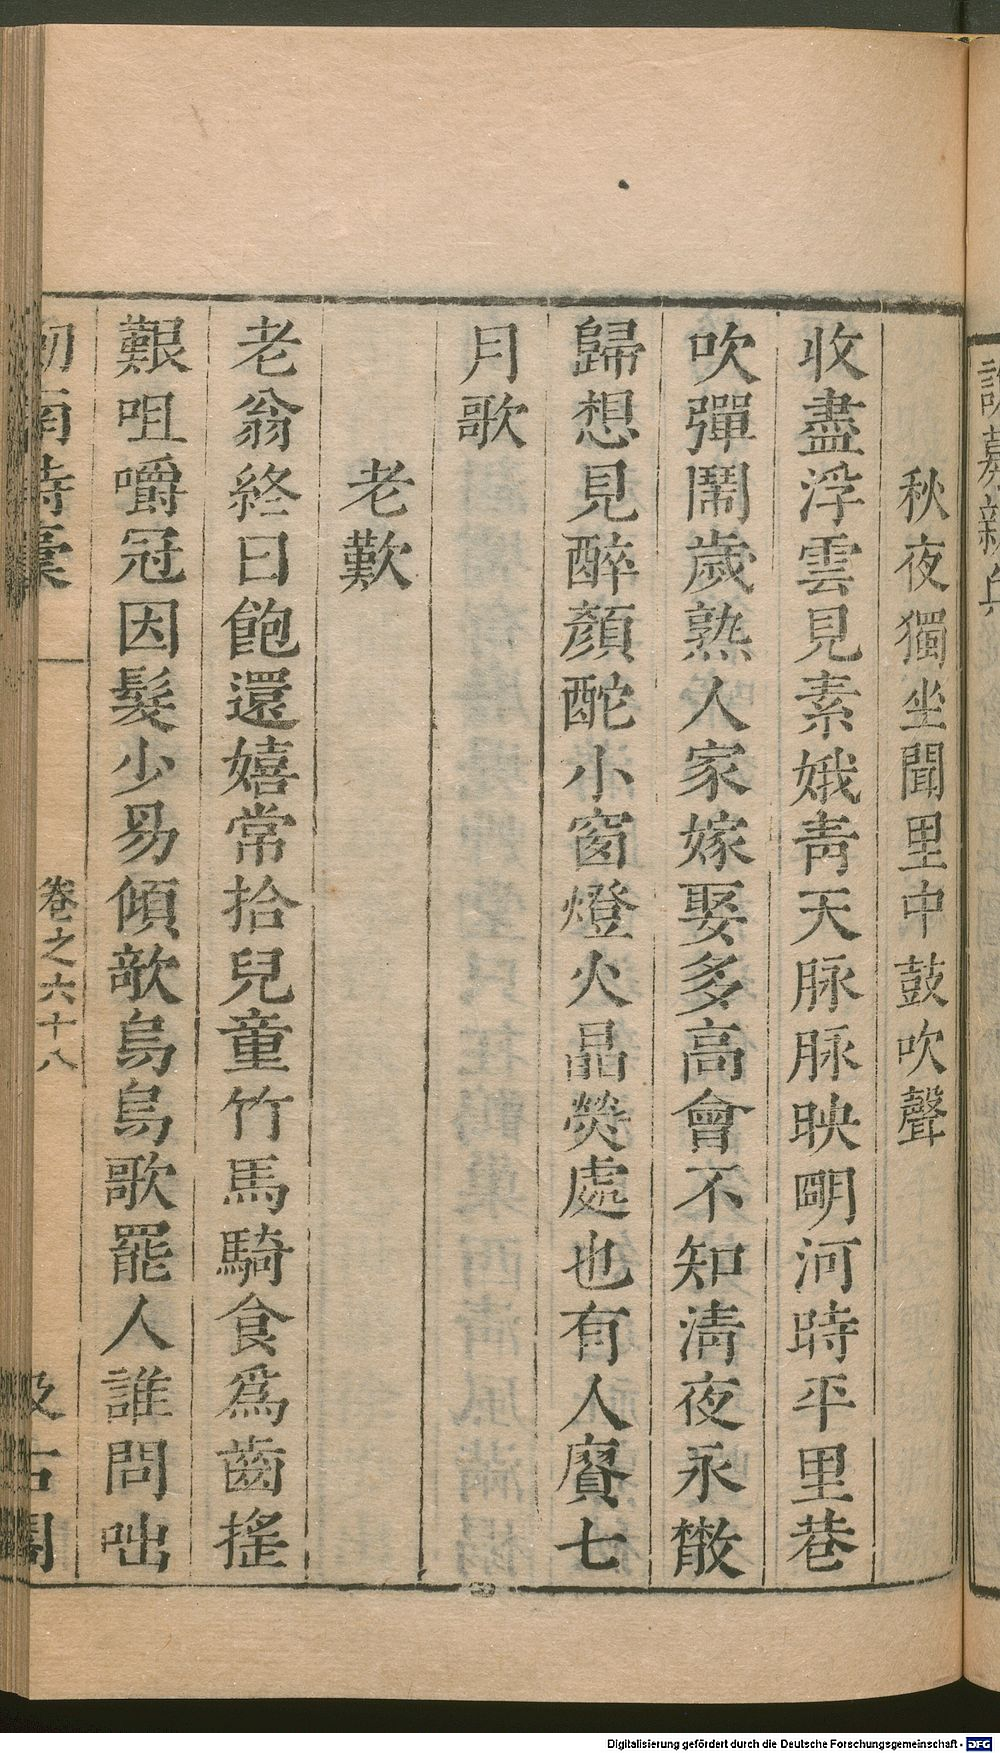 秋夜獨坐聞里中鼓吹聲
收盡浮雲見素娥青天脉脉映明河時平里巷
吹彈鬧歲熟人家嫁娶多高會不知清夜永散
歸想見醉顏酡小窗燈火晶熒處也有人賡七
月歌
老歎
老翁終日飽還嬉常拾兒童竹馬騎食爲齒搖
艱咀嚼冠因髮少易傾欹烏烏歌罷人誰問咄
劒南詩稾
卷之六十八
汲古閣
Digitalisierung gefördert durch die Deutsche Forschungsgemeinschaft - DFG